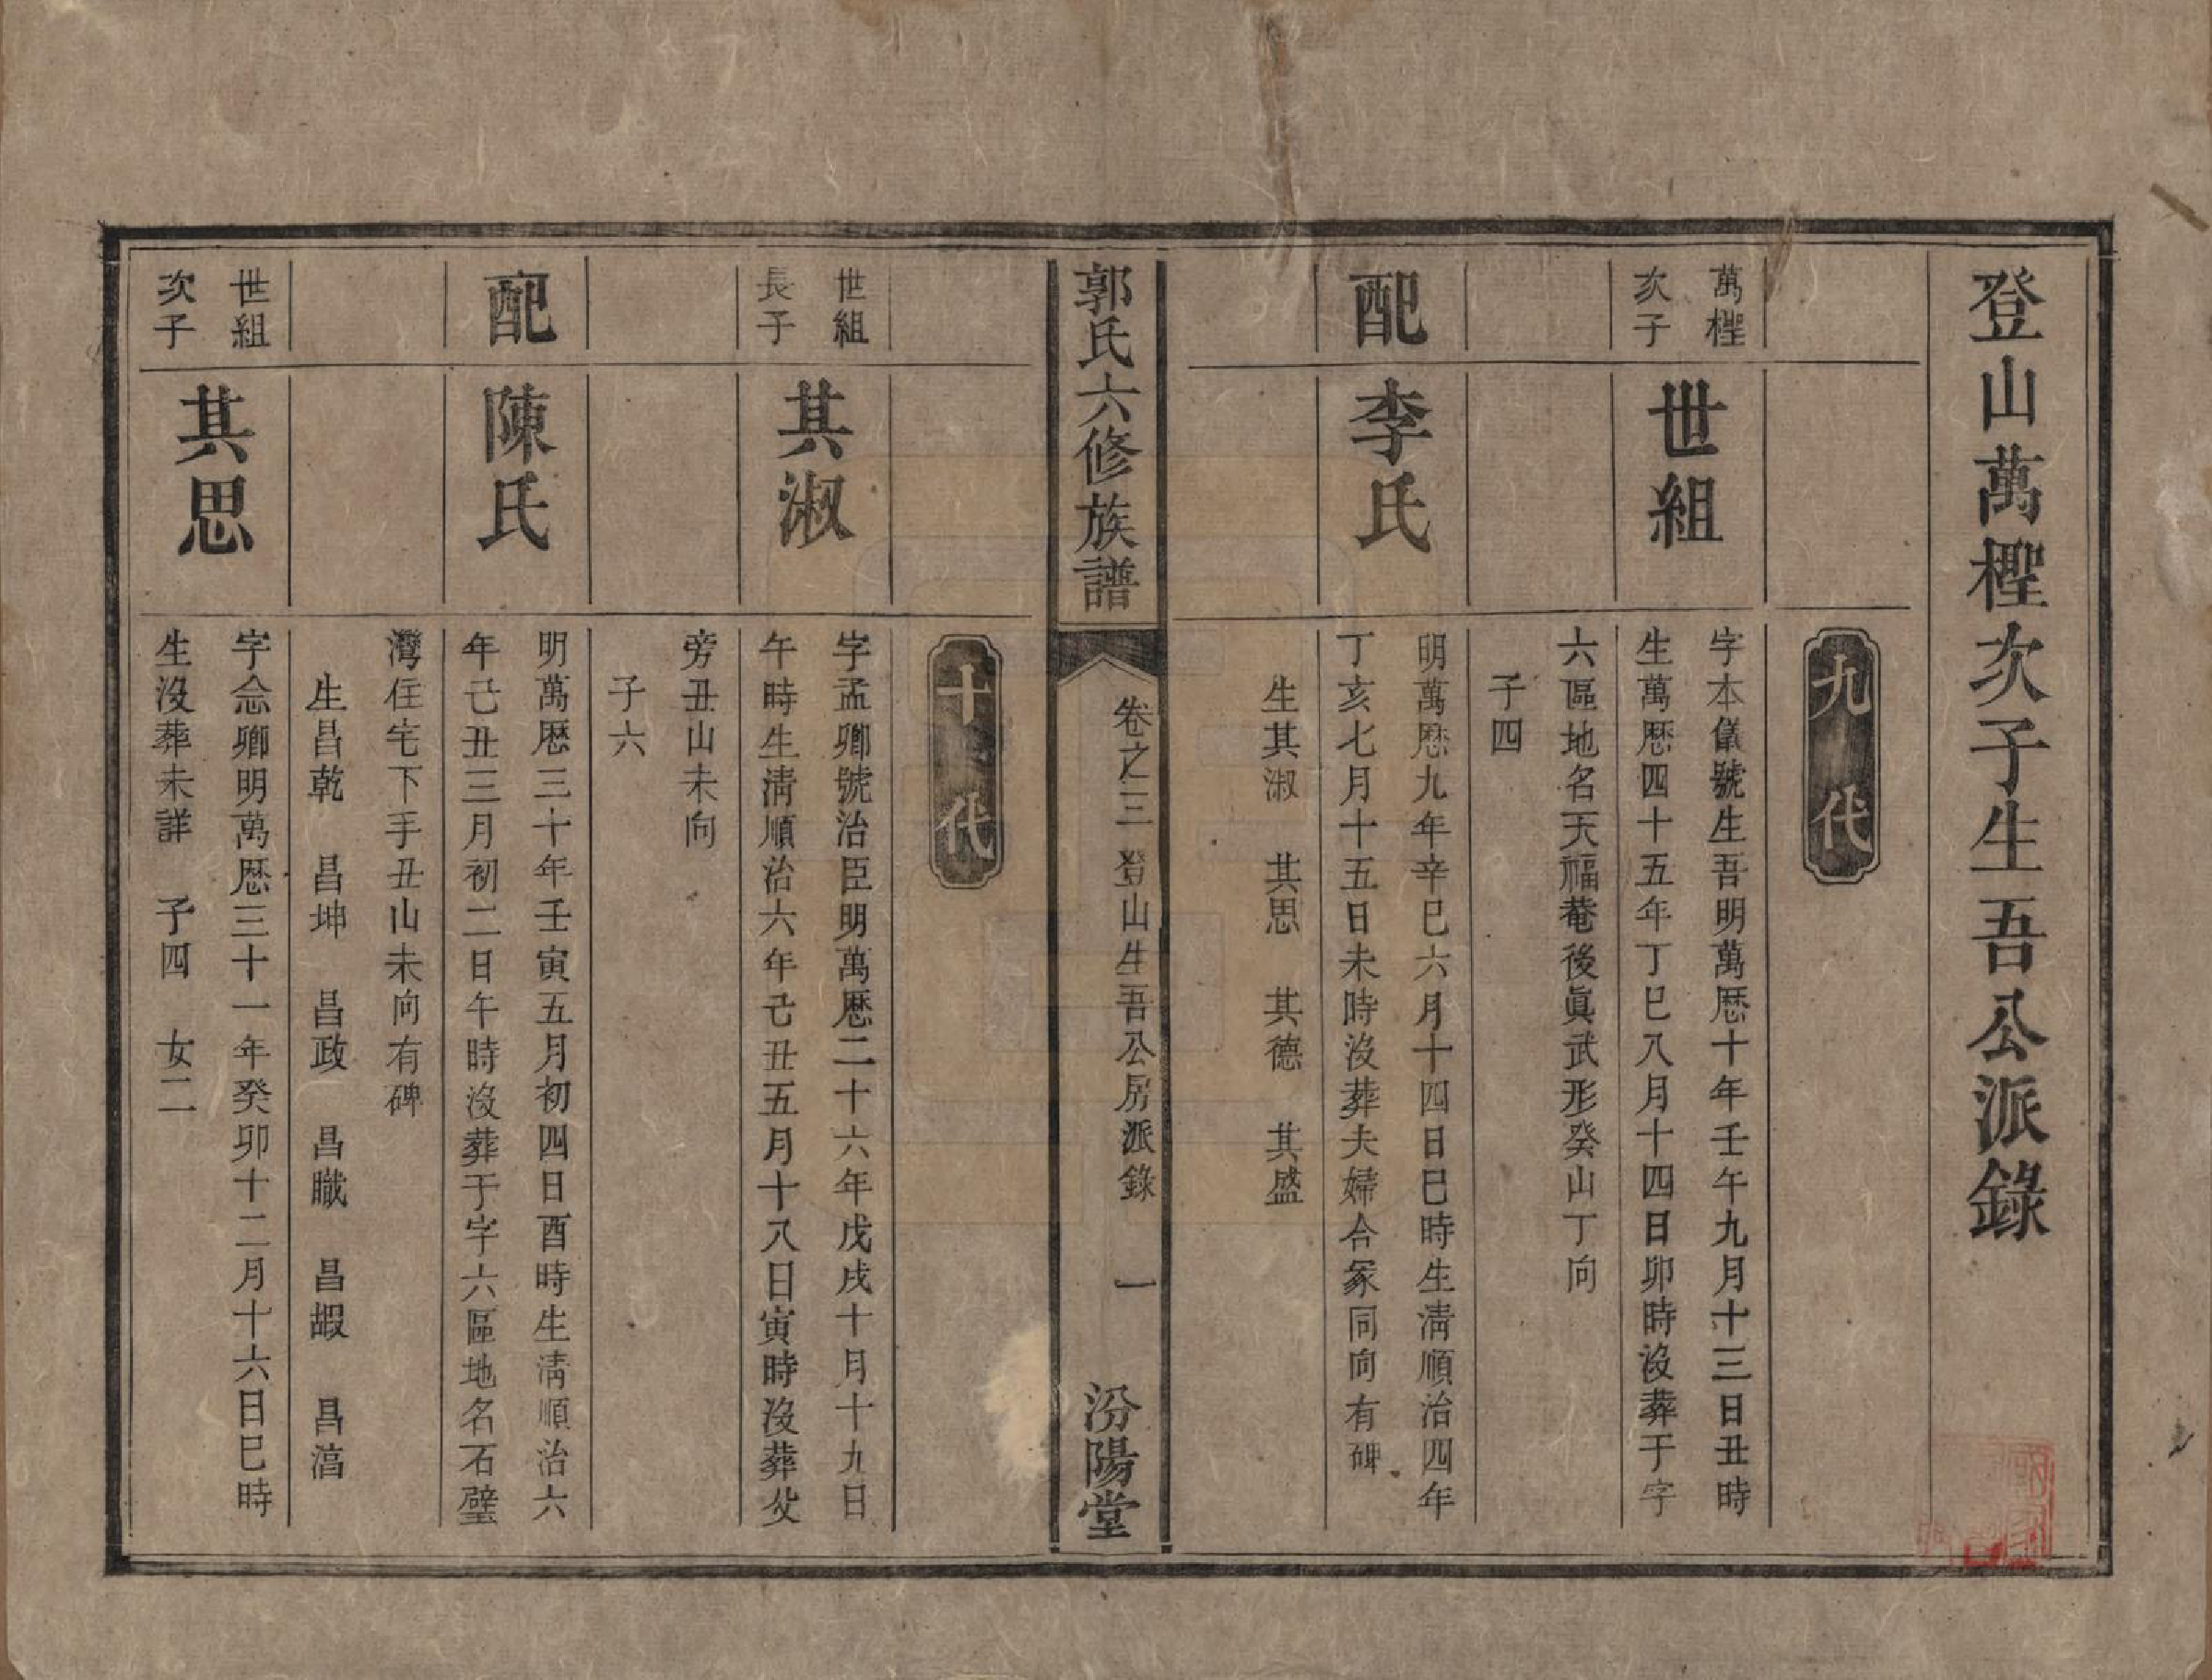 登山萬樫次子生吾公派錄
九代
萬樫
次子
世組
字本儀號生吾明萬厯十年壬午九月十三日丑時
生萬厯四十五年丁巳八月十四日卯時沒葬于字
六區地名天福菴後眞武形癸山丁向
子四
配
李氏
明萬厯九年辛巳六月十四日巳時生淸順治四年
丁亥七月十五日未時沒葬夫婦合冢同向有碑
生其淑　其思　其德　其盛
郭氏六修族譜
卷之三
登山生吾公房派錄
一
汾陽堂
十代
世組
長子
其淑
字孟卿號治臣明萬厯二十六年戊戌十月十九日
午時生淸順治六年己丑五月十八日寅時沒葬父
旁丑山未向
子六
配
陳氏
明萬厯三十年壬寅五月初四日酉時生淸順治六
年己丑三月初二日午時沒葬于字六區地名石璧
灣住宅下手丑山未向有碑
生昌乾　昌坤　昌政　昌職　昌嘏　昌湻
世組
次子
其思
字念卿明萬厯三十一年癸卯十二月十六日巳時
生沒葬未詳　子四　女二